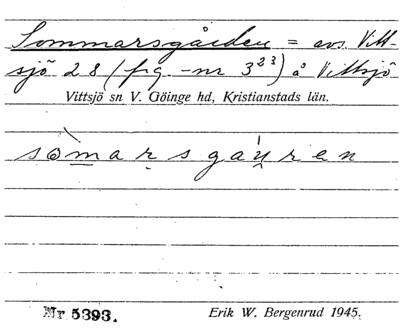 Sommarsgården = avs. Vitt-
sjö 28 (frg.-nr 3²³) å Vittsjö
Vittsjö sn V. Göinge hd, Kristianstads län.
sòmarsgaų́ren
Nr 5393. Erik W. Bergenrud 1945.